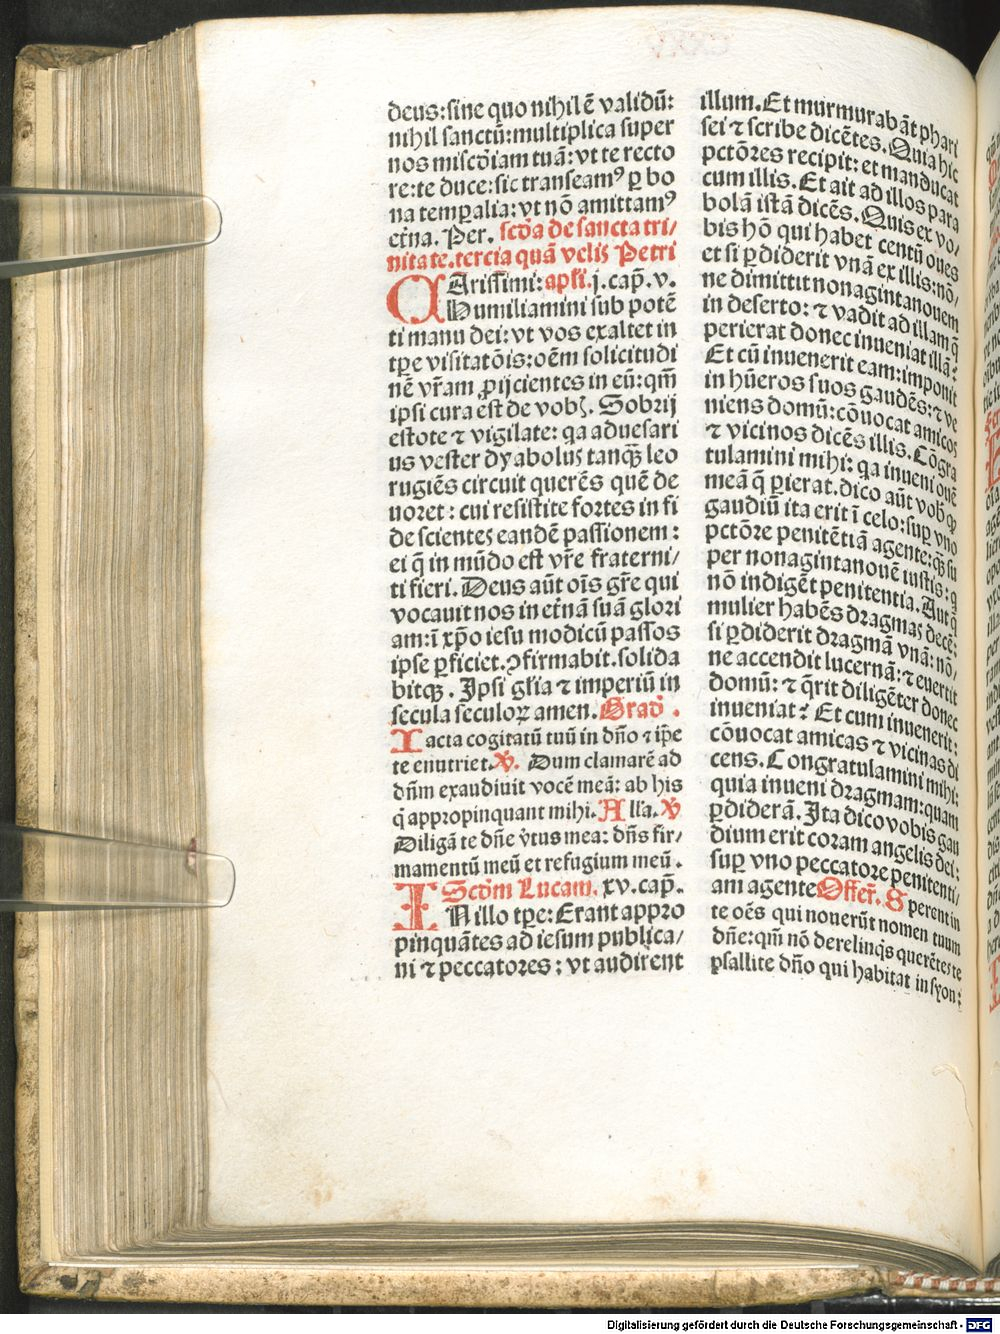 deus: sine quo nihil ē validū:
nihil sanctū: multiplica super
nos mīscd̄iam tuā: vt te recto
re: te duce: sic transeamꝰ ꝑ bo
na temꝑalia: vt nō amittamꝰ
et̄na. Per. scd̄a de sancta tri/
nitate. tercia quā velis Petri
CArissimi: apl̓i. j. cap̄. v.
Humiliamini sub potē
ti manu dei: vt vos exaltet in
tꝑe visitatōis: oēm solicitudi
nē vr̄am ꝓijcientes in eū: qm̄
ipsi cura est de vobꝫ. Sobrij
estote ⁊ vigilate: qa aduersari
us vester dyabolus tanqꝫ leo
rugiēs circuit querēs quē de
uoret: cui resistite fortes in fi
de scientes eandē passionem:
ei q̄ in mūdo est vr̄e fraterni/
ti fieri. Deus aūt oīs gr̄e qui
vocauit nos in et̄nā suā glori
am: ī xp̄o iesu modicū passos
ipse ꝑficiet. ꝯfirmabit. solida
bitqꝫ. Ipsi gl̓ia ⁊ imperiū in
secula seculoꝝ amen. Grad̓.
Iacta cogitatū tuū in dn̄o ⁊ ip̄e
te enutriet. V̓. Dum clamarē ad
dn̄m exaudiuit vocē meā: ab his
q̄ appropinquant mihi. Alla. V̓
Diligā te dn̄e v̓tus mea: dn̄s fir/
mamentū meū et refugium meū.
Scd̓m Lucam. xv. cap̄.
IN illo tꝑe: Erant appro
pinquātes ad iesum publica/
ni ⁊ peccatores: vt audirent
illum. Et murmurabāt phari
sei ⁊ scribe dicētes. Quia hic
pctōres recipit: et manducat
cum illis. Et ait ad illos para
bolā istā dicēs. Quis ex vo/
bis hō qui habet centū oues
et si ꝑdiderit vnā ex illis: nō/
ne dimittit nonagintanouem
in deserto: ⁊ vadit ad illam q̄
perierat donec inueniat illā?
Et cū inuenerit eam: imponit
in hūeros suos gaudēs: ⁊ ve
niens domū: cōuocat amicos
⁊ vicinos dicēs illis. Cōgra
tulamini mihi: qa inueni ouē
meā q̄ ꝑierat. dico aūt vob̓ ꝙ
gaudiū ita erit ī celo: suꝑ vno
pctōre penitētiā agente: qꝫ su
per nonagintanouē iustis: q̄
nō indigēt penitentia. Aut q̄
mulier habēs dragmas decē:
si ꝑdiderit dragmā vnā: nō/
ne accendit lucernā: ⁊ euertit
domū: ⁊ q̄rit diligēter donec
inueniat? Et cum inuenerit:
cōuocat amicas ⁊ vicinas di
cens. Congratulamini mihi:
quia inueni dragmam: quam
ꝑdiderā. Ita dico vobis gau
dium erit coram angelis dei:
suꝑ vno peccatore penitenti/
am agente Offer̄. Sperent in
te oēs qui nouerūt nomen tuum
dn̄e: qm̄ nō derelinq̓s querētes te
psallite dn̄o qui habitat in syon:
Digitalisierung gefördert durch die Deutsche Forschungsgemeinschaft - DFG